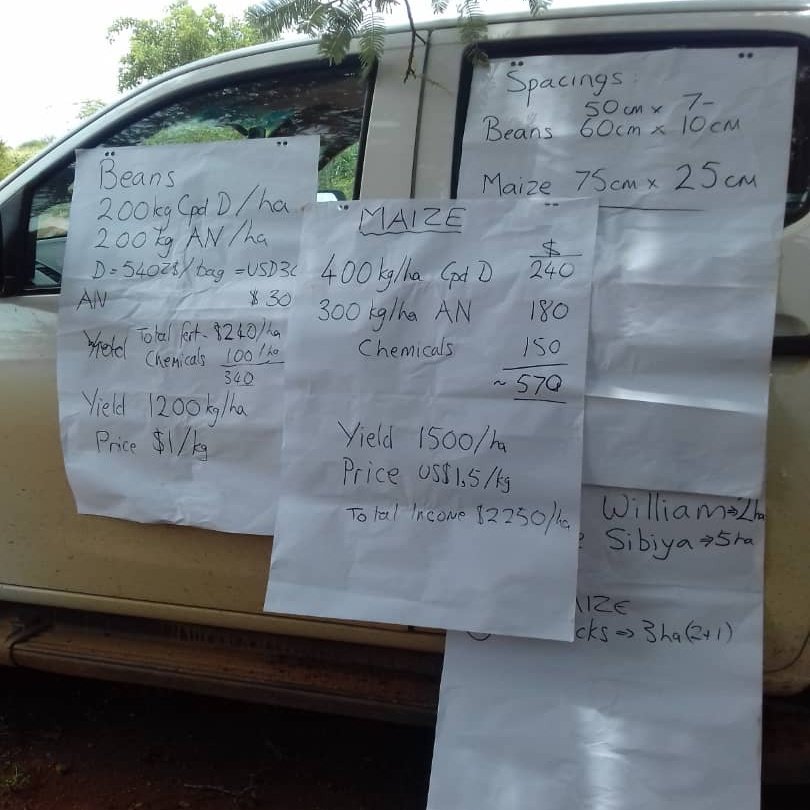 Beans
200kg Cpd D/ha
200kg AN/ha
/bag = USD30
AN $30
Total fert- $240/ha
Chemicals 100/ha
340
Yield 1200kg/ha
Price $1/kg
MAIZE
$
400kg/ha Cpd D 240
300kg/ha AN 180
Chemicals 150
~570
Yield 1500/ha
Price US$1,5/kg
Total Income $2250/ha
Spacings:
50cm x 7-
Beans 60cm x 10cm
Maize 75cm x 25cm
William⇒2ha
Sibiya⇒5ha
AIZE
cks⇒3ha(2+1)